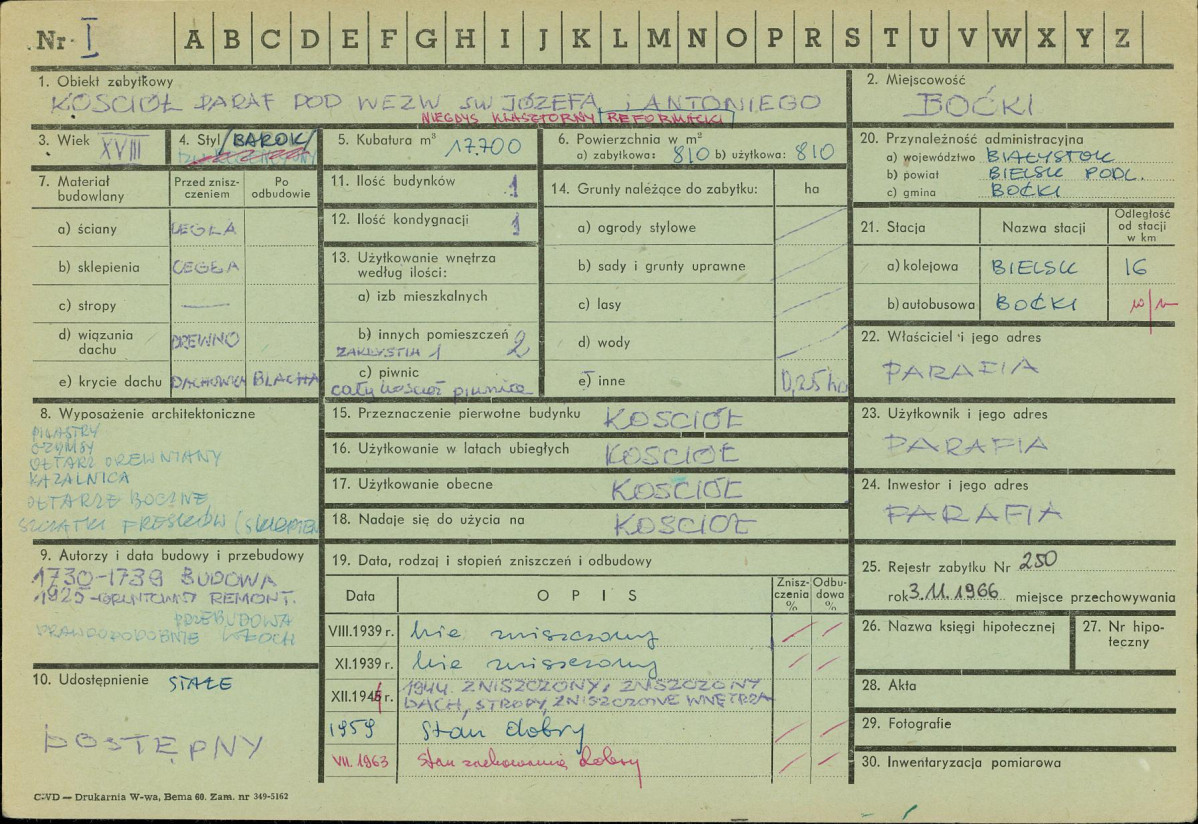 Nr I A B C D E F G H I J K L M N O P R S T U V W X Y Z
1. Obiekt zabytkowy
KOŚCIÓŁ PARAF POD WEZW ŚW JÓZEFA i ANTONIEGO
NIEGDYŚ KLASZTORNY REFORMACKI
2. Miejscowość
BOĆKI
3. Wiek XVIII
4. Styl BAROK
5. Kubatura m³ 17.700
6. Powierzchnia w m²
a) zabytkowa: 810 b) użytkowa: 810
7. Materiał budowlany
Przed zniszczeniem
Po odbudowie
a) ściany CEGŁA
b) sklepienia CEGŁA
c) stropy —
d) wiązania dachu DREWNO
e) krycie dachu DACHÓWKA BLACHA
8. Wyposażenie architektoniczne
PILASTRY
GZYMSY
OŁTARZ DREWNIANY
KAZALNICA
OŁTARZE BOCZNE
SZCZĄTKI FRESKÓW (SKLEPIEN
9. Autorzy i data budowy i przebudowy
1730-1739 BUDOWA
1925 - GRUNTOWNY REMONT.
PRZEBUDOWA
PRAWDOPODOBNIE WŁOCH
10. Udostępnienie STAŁE
DOSTĘPNY
11. Ilość budynków 1
12. Ilość kondygnacji 1
13. Użytkowanie wnętrza
według ilości:
a) izb mieszkalnych
b) innych pomieszczeń 2
ZAKRYSTIA 1
c) piwnic
cały kościół piwnice
14. Grunty należące do zabytku: ha
a) ogrody stylowe
b) sady i grunty uprawne
c) lasy
d) wody
e) inne 0,25 ha
15. Przeznaczenie pierwotne budynku KOŚCIÓŁ
16. Użytkowanie w latach ubiegłych KOŚCIÓŁ
17. Użytkowanie obecne KOŚCIÓŁ
18. Nadaje się do użycia na KOŚCIÓŁ
19. Data, rodzaj i stopień zniszczeń i odbudowy
Data OPIS Zniszczenia % Odbudowa %
VIII.1939 r. Nie zniszczony
XI.1939 r. Nie zniszczony
XII.194 r. 1944. ZNISZCZONY, ZNISZCZONY
DACH, STROPY, ZNISZCZONE WNĘTRZA
1959 Stan dobry
VII. 1963 Stan zachowania dobry
20. Przynależność administracyjna
a) województwo BIAŁYSTOK
b) powiat BIELSK PODL.
c) gmina BOĆKI
21. Stacja Nazwa stacji Odległość od stacji w km
a) kolejowa BIELSK 16
b) autobusowa BOĆKI w/m
22. Właściciel i jego adres
PARAFIA
23. Użytkownik i jego adres
PARAFIA
24. Inwestor i jego adres
PARAFIA
25. Rejestr zabytku Nr 250
rok 3.11.1966 miejsce przechowywania
26. Nazwa księgi hipotecznej
27. Nr hipoteczny
28. Akta
29. Fotografie
30. Inwentaryzacja pomiarowa
CWD — Drukarnia W-wa, Bema 60. Zam. nr 349-5162